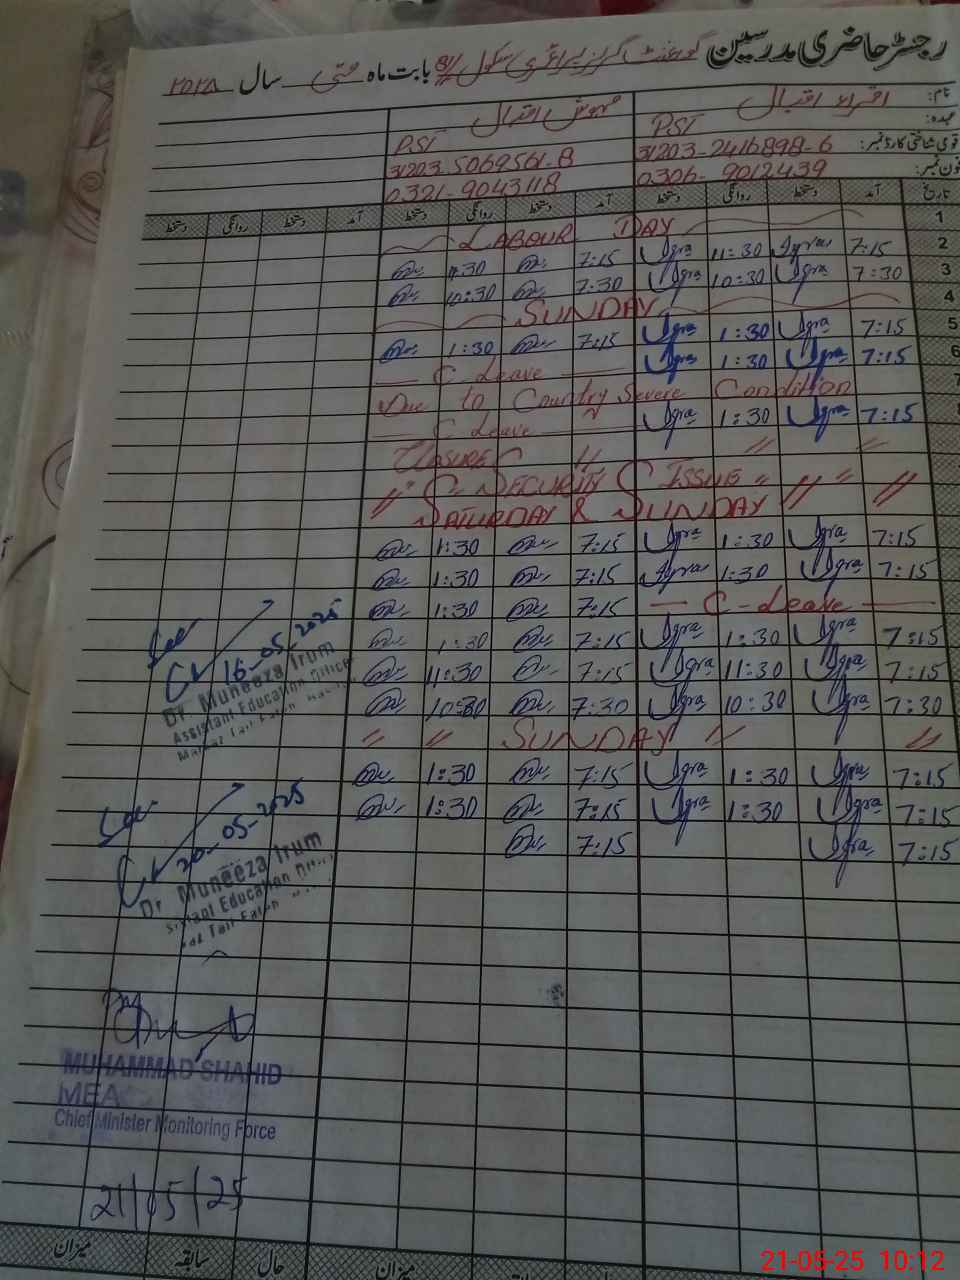 رجسٹر حاضری مدرسین گورنمنٹ گرلز پرائمری سکول بابت ماہ مئی سال
نام: اقراء اقبال مہوش اقبال
عہدہ: PST PST
قومی شناختی کارڈ نمبر: 31203-2416898-6 31203-5069561-8
فون نمبر: 0306-9012439 0321-9043118
تاریخ آمد دستخط روانگی دستخط آمد دستخط روانگی دستخط آمد دستخط روانگی دستخط
1 LABOUR DAY
2 7:15 Iqra 11:30 Iqra 7:15 11:30
3 7:30 Iqra 10:30 Iqra 7:30 10:30
4 SUNDAY
5 7:15 Iqra 1:30 Iqra 7:15 1:30
6 7:15 Iqra 1:30 Iqra — C Leave —
7 Due to Country Severe Condition
7:15 Iqra 1:30 Iqra — C Leave —
CLOSURE " " "
" SECURITY ISSUE " " " "
SATURDAY & SUNDAY
7:15 Iqra 1:30 Iqra 7:15 1:30
7:15 Iqra 1:30 Iqra 7:15 1:30
— C-Leave — 7:15 1:30
7:15 Iqra 1:30 Iqra 7:15 1:30
7:15 Iqra 11:30 Iqra 7:15 11:30
7:30 Iqra 10:30 Iqra 7:30 10:30
" " SUNDAY " "
7:15 Iqra 1:30 Iqra 7:15 1:30
7:15 Iqra 1:30 Iqra 7:15 1:30
7:15 Iqra 7:15
16-05-2025
Dr. Muneeza Irum
Assistant Education Officer
20-05-2025
Dr. Muneeza Irum
MUHAMMAD SHAHID
MEA
Chief Minister Monitoring Force
21/05/25
میزان حال سابقہ میزان
21-05-25 10:12